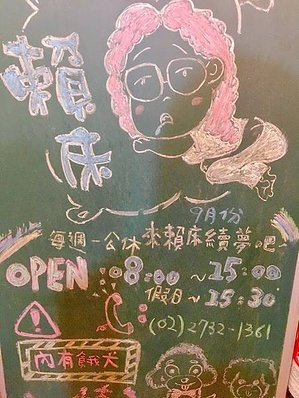 賴床
9月份
每週一公休來賴床續夢吧~
OPEN:08:00~15:00
假日~15:30
(02)2732-1361
內有餓犬